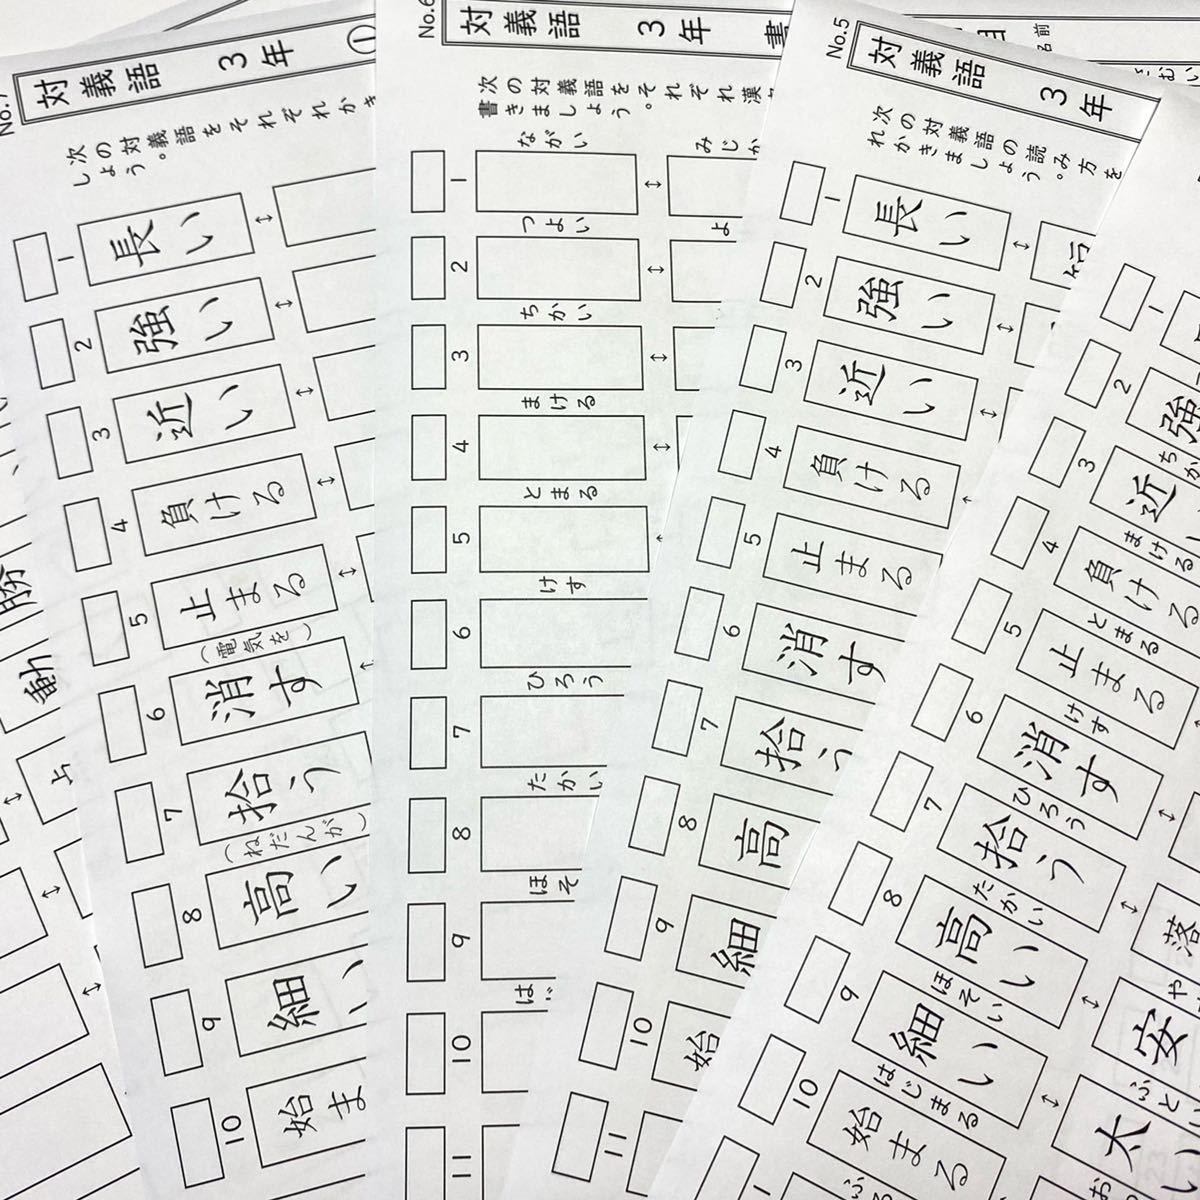 No.7
対義語 3年 ①
次の対義語をそれぞれかき
しょう。
1 長い ↔
2 強い ↔
3 近い ↔
4 負ける ↔
5 止まる ↔
(電気を)
6 消す
7 拾う
(ねだんが)
8 高い
9 細い
10 始ま
No.6
対義語 3年 書
次の対義語をそれぞれ漢
書きましょう。
ながい
みじか
1 ↔
つよい
よ
2 ↔
ちかい
3 ↔
まける
4 ↔
とまる
5
けす
6
ひろう
7
たかい
8
ほそ
9
はじ
10
11
No.5
対義語 3年
次の対義語の読み方を
れかきましょう。
1 長い ↔
2 強い ↔
3 近い ↔
4 負ける
5 止まる
6 消す
7 拾う
8 高
9 細
10 始
11
名前
1
2 強
ちか
3 近
まける
4 負ける
とまる
5 止まる
けす
6 消す
ひろう
7 拾う ↔ 落
たかい
や
8 高い ↔ 安
ほそい
ふとい
9 細い ↔ 太い
はじまる
お
10 始まる
ふ
動
勝